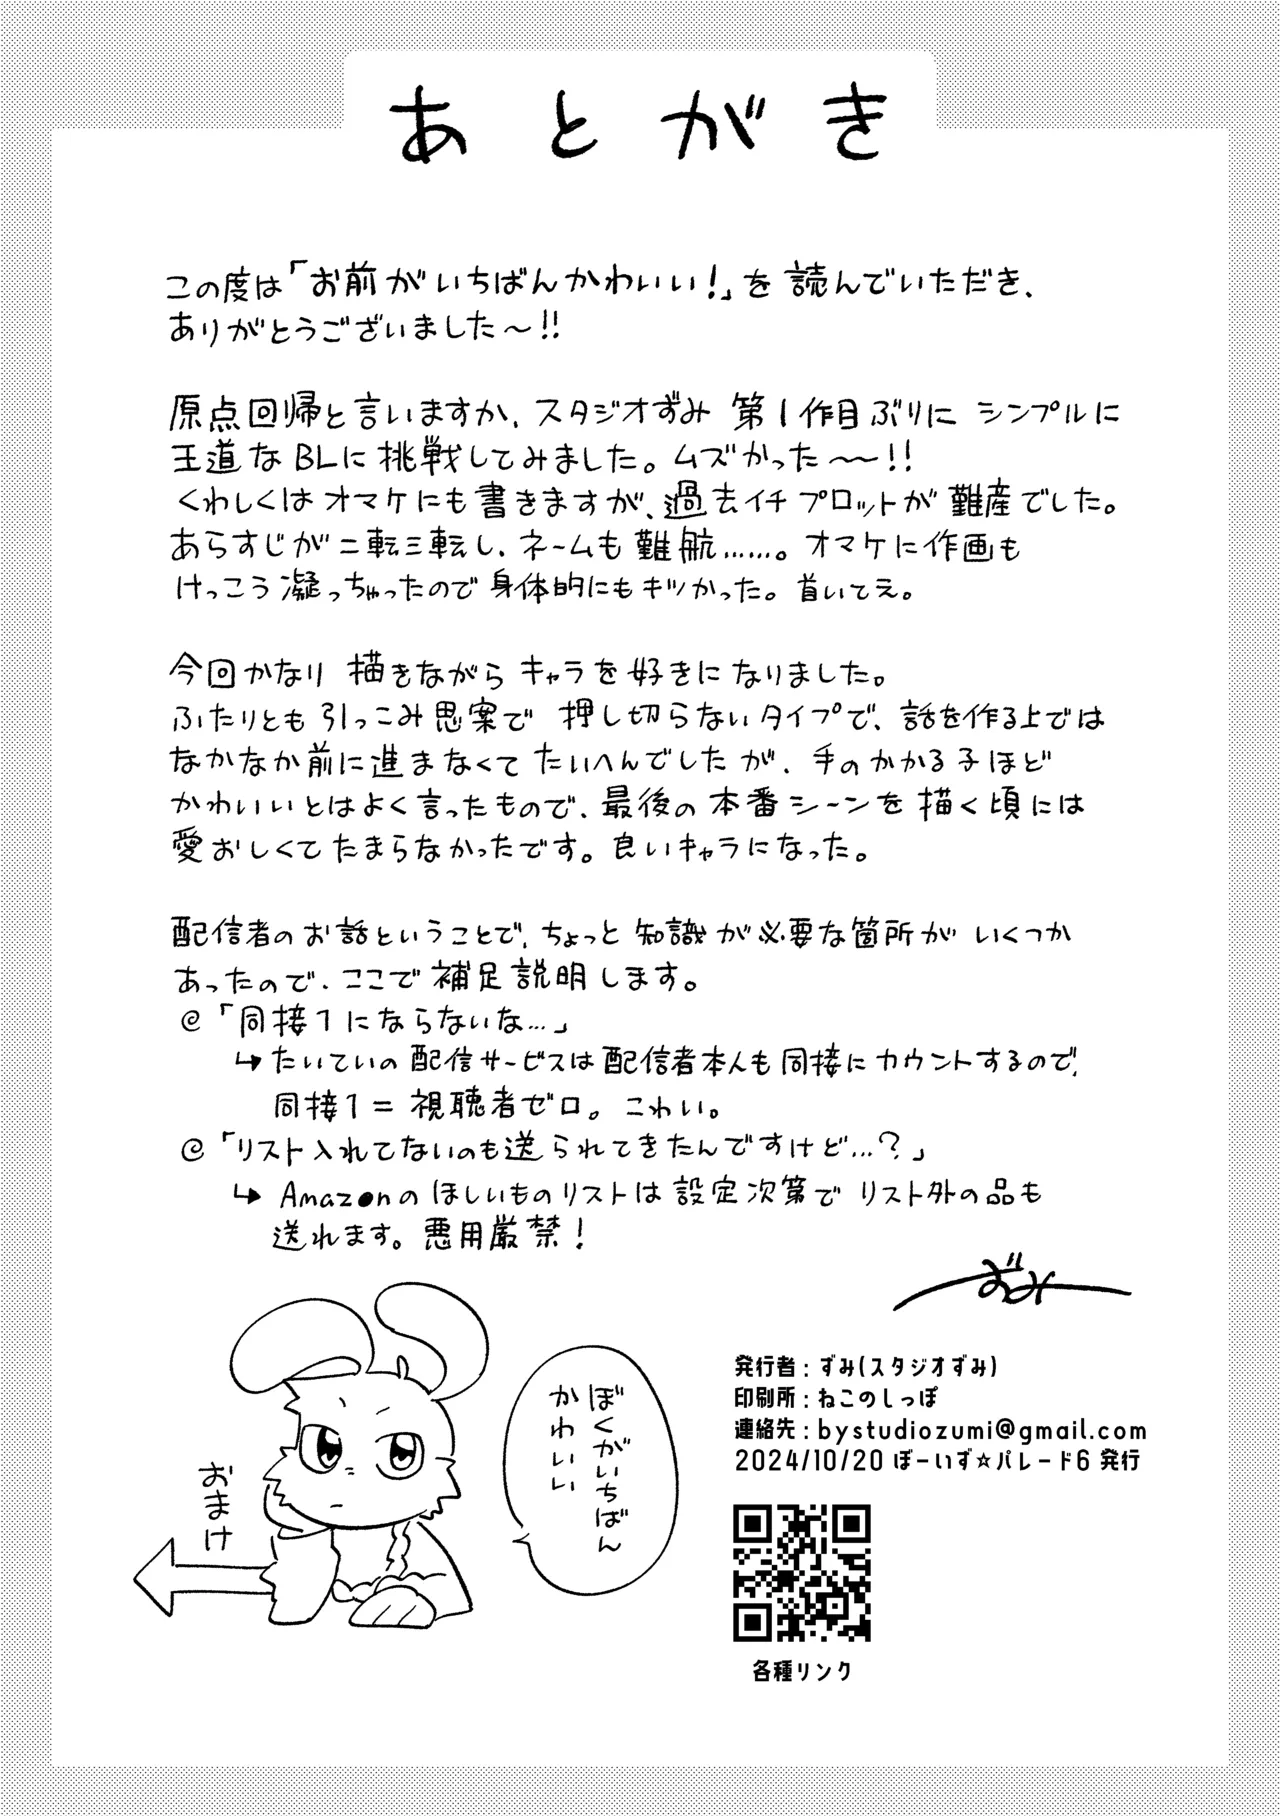 あとがき
この度は「お前がいちばんかわいい!」を読んでいただき、
ありがとうございました〜!!
原点回帰と言いますか、スタジオずみ 第1作目ぶりに シンプルに
王道なBLに挑戦してみました。ムズかった〜〜!!
くわしくはオマケにも書きますが、過去イチプロットが難産でした。
あらすじが二転三転し、ネームも難航……。オマケに作画も
けっこう凝っちゃったので身体的にもキツかった。首いてえ。
今回かなり描きながらキャラを好きになりました。
ふたりとも引っこみ思案で押し切らないタイプで、話を作る上では
なかなか前に進まなくてたいへんでしたが、手のかかる子ほど
かわいいとはよく言ったもので、最後の本番シーンを描く頃には
愛おしくてたまらなかったです。良いキャラになった。
配信者のお話ということで、ちょっと知識が必要な箇所がいくつか
あったので、ここで補足説明します。
@「同接1にならないな…」
↳たいていの配信サービスは配信者本人も同接にカウントするので、
同接1=視聴者ゼロ。こわい。
@「リスト入れてないのも送られてきたんですけど…?」
↳Amaz●nのほしいものリストは設定次第でリスト外の品も
送れます。悪用厳禁!
ずみ
ぼくがいちばん
かわいい
おまけ
発行者:ずみ(スタジオずみ)
印刷所:ねこのしっぽ
連絡先:bystudiozumi@gmail.com
2024/10/20 ぼーいず☆パレード6 発行
各種リンク